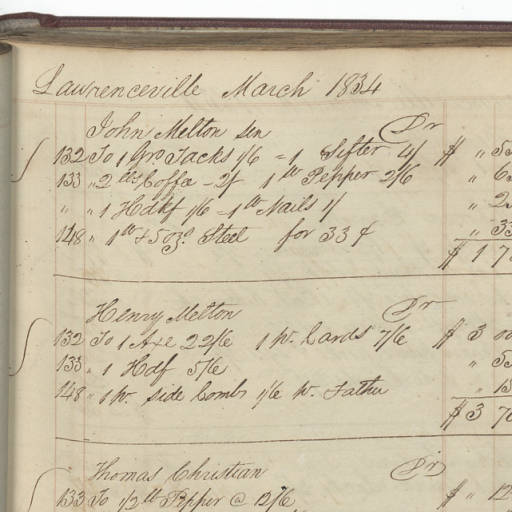 Lawrenceville March 1834
John Melton sen Dr
132 To 1 Gro Tacks 1/6 = 1 Sifter 4/ $ " 55
133 " 2 lbs Coffa - 2/ 1 lb Pepper 2/6 "
" " 1 Hdkf 1/6 - 1 lb Nails 1/ " 2
148 " 1 lb & 5 oz Steel for 33 ¢ " 33
$ 1 7
Henry Melton Dr
132 To 1 Axe 22/6 1 pr. Cards 7/6 $ 3 00
133 " 1 Hdf 5/6 " 5
148 " 1 pr. Side Comb 1/6 pr. Father " 15
$ 3 7
Thomas Christian Dr
133 To 1/2 lb Pepper @ 12/6 $ " 12